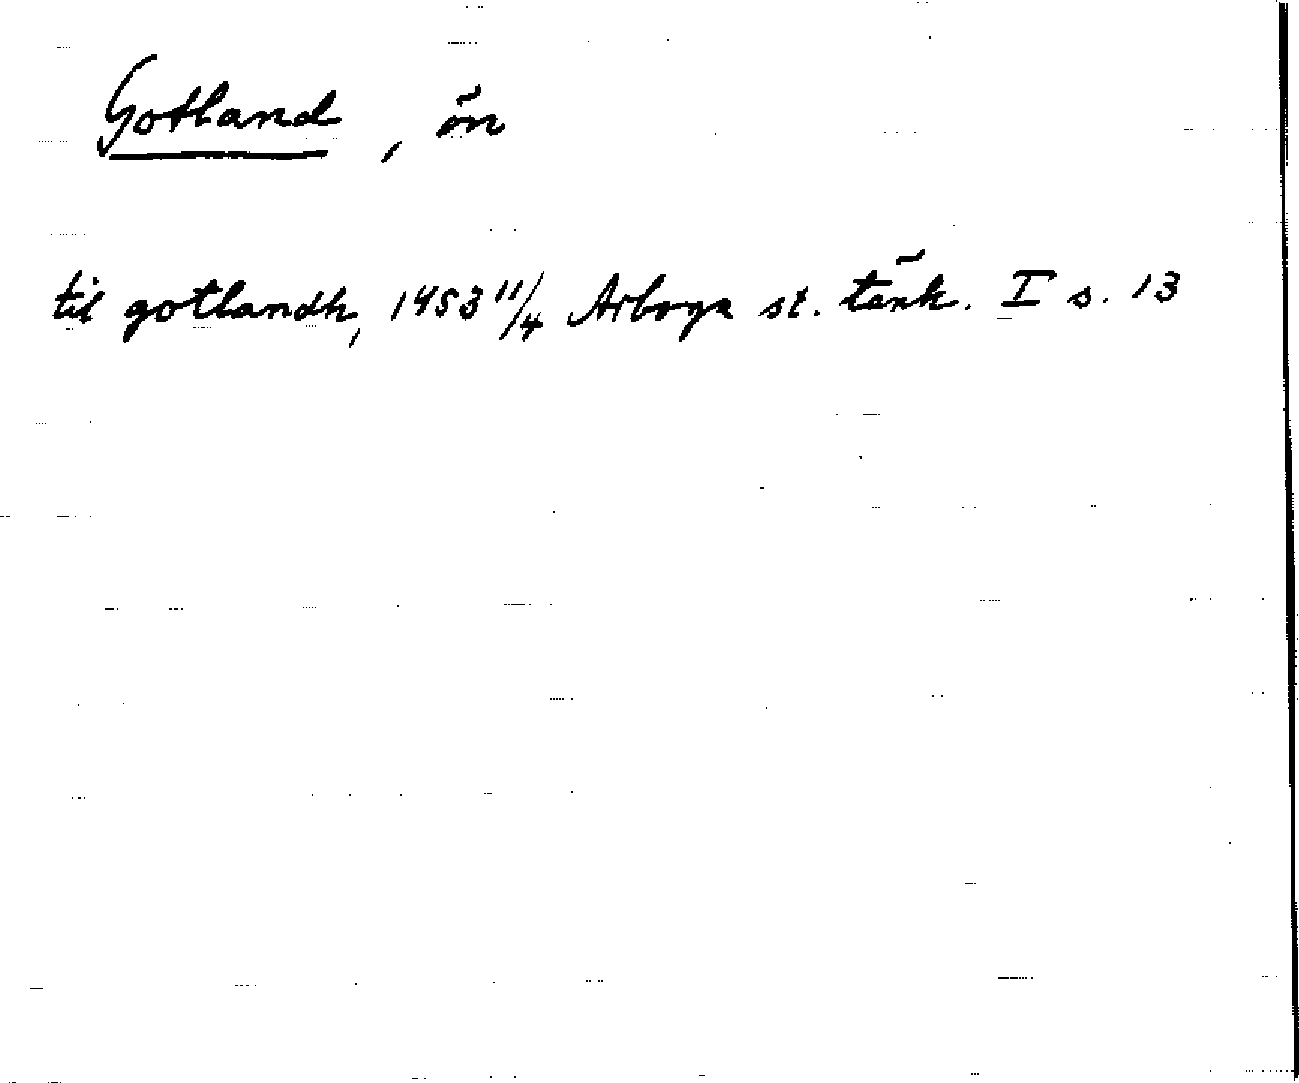 Gotland, ön
til gotlandh, 1453 11/4 Arboga st. tänk. I s. 13